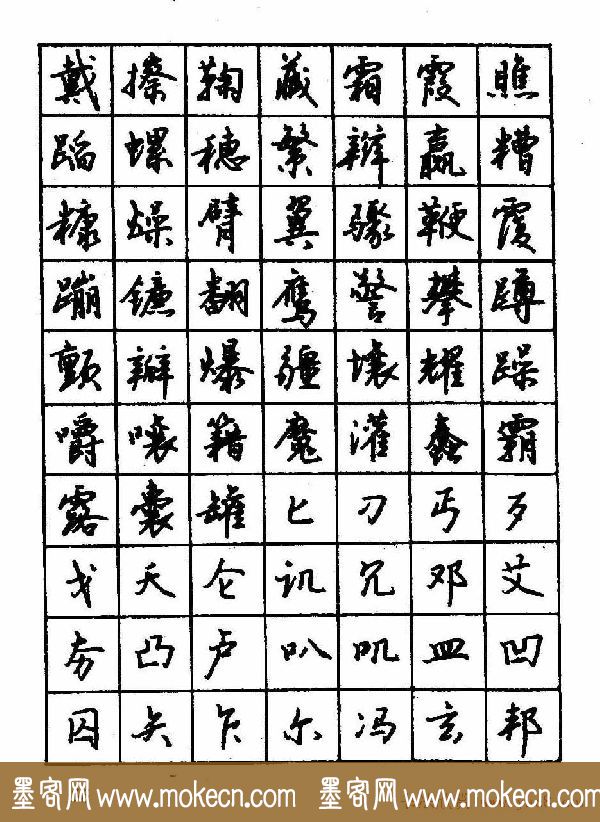 戴擦鞠藏霜霞瞧
蹈螺穗繁辫赢糟
糠燥臂翼骤鞭覆
蹦镰翻鹰警攀蹲
颤瓣爆疆壤耀躁
嚼嚷籍魔灌蠢霸
露囊罐匕刁丐歹
戈夭仑讥冗邓艾
夯凸卢叭叽皿凹
囚矢乍尔冯玄邦
墨客网 www.mokecn.com 墨客网 www.mokecn.com